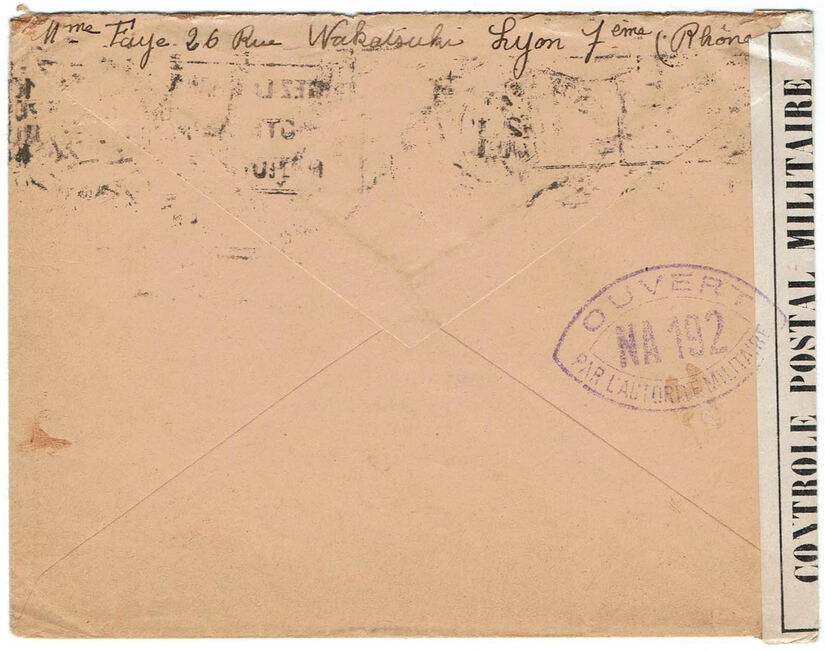 Mme Faye 26 Rue Wakatsuki Lyon 7ème (Rhône
OUVERT
NA 192
PAR L'AUTORITÉ MILITAIRE
CONTROLE POSTAL MILITAIRE